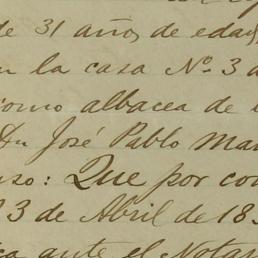 de 31 años de edad,
la casa Nº 3 a
como albacea de
Dn José Pablo Mar
uso: Que por con
3 de Abril de 18
ante el Notar